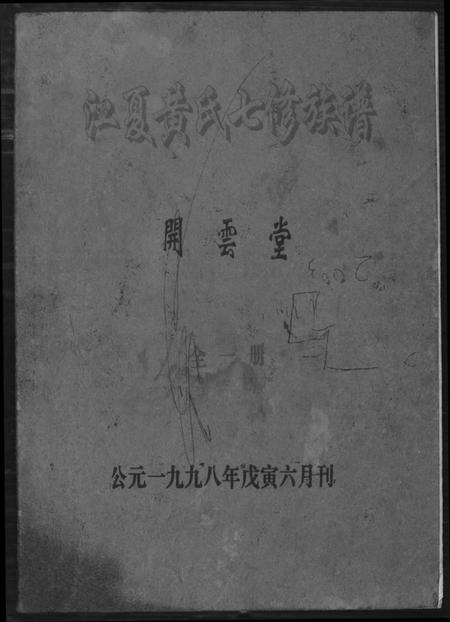 江夏黄氏七修族谱
開雲堂
全一册
公元一九九八年戊寅六月刊